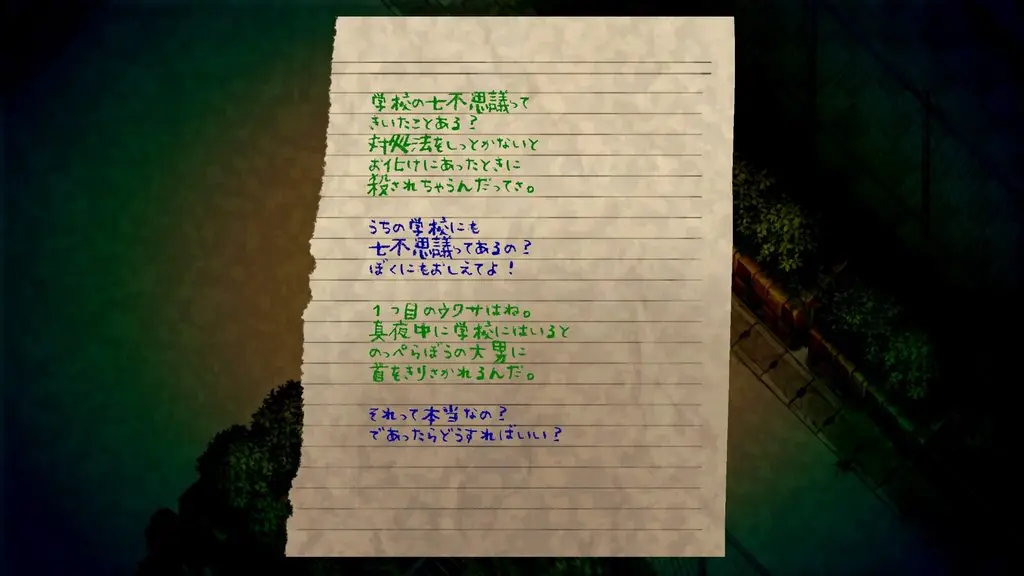 学校の七不思議って
きいたことある？
対処法をしっとかないと
お化けにあったときに
殺されちゃうんだってさ。
うちの学校にも
七不思議ってあるの？
ぼくにもおしえてよ！
1つ目のウワサはね。
真夜中に学校にはいると
のっぺらぼうの大男に
首をきりさかれるんだ。
それって本当なの？
であったらどうすればいい？